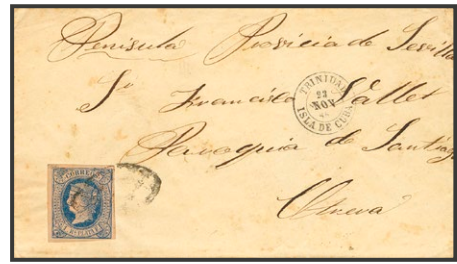 Peninsula Provicia de Sevilla
Sr Francisco Vallet
TRINIDAD
22
NOV
ISLA DE CUBA
Paroquia de Santiag
CORREOS